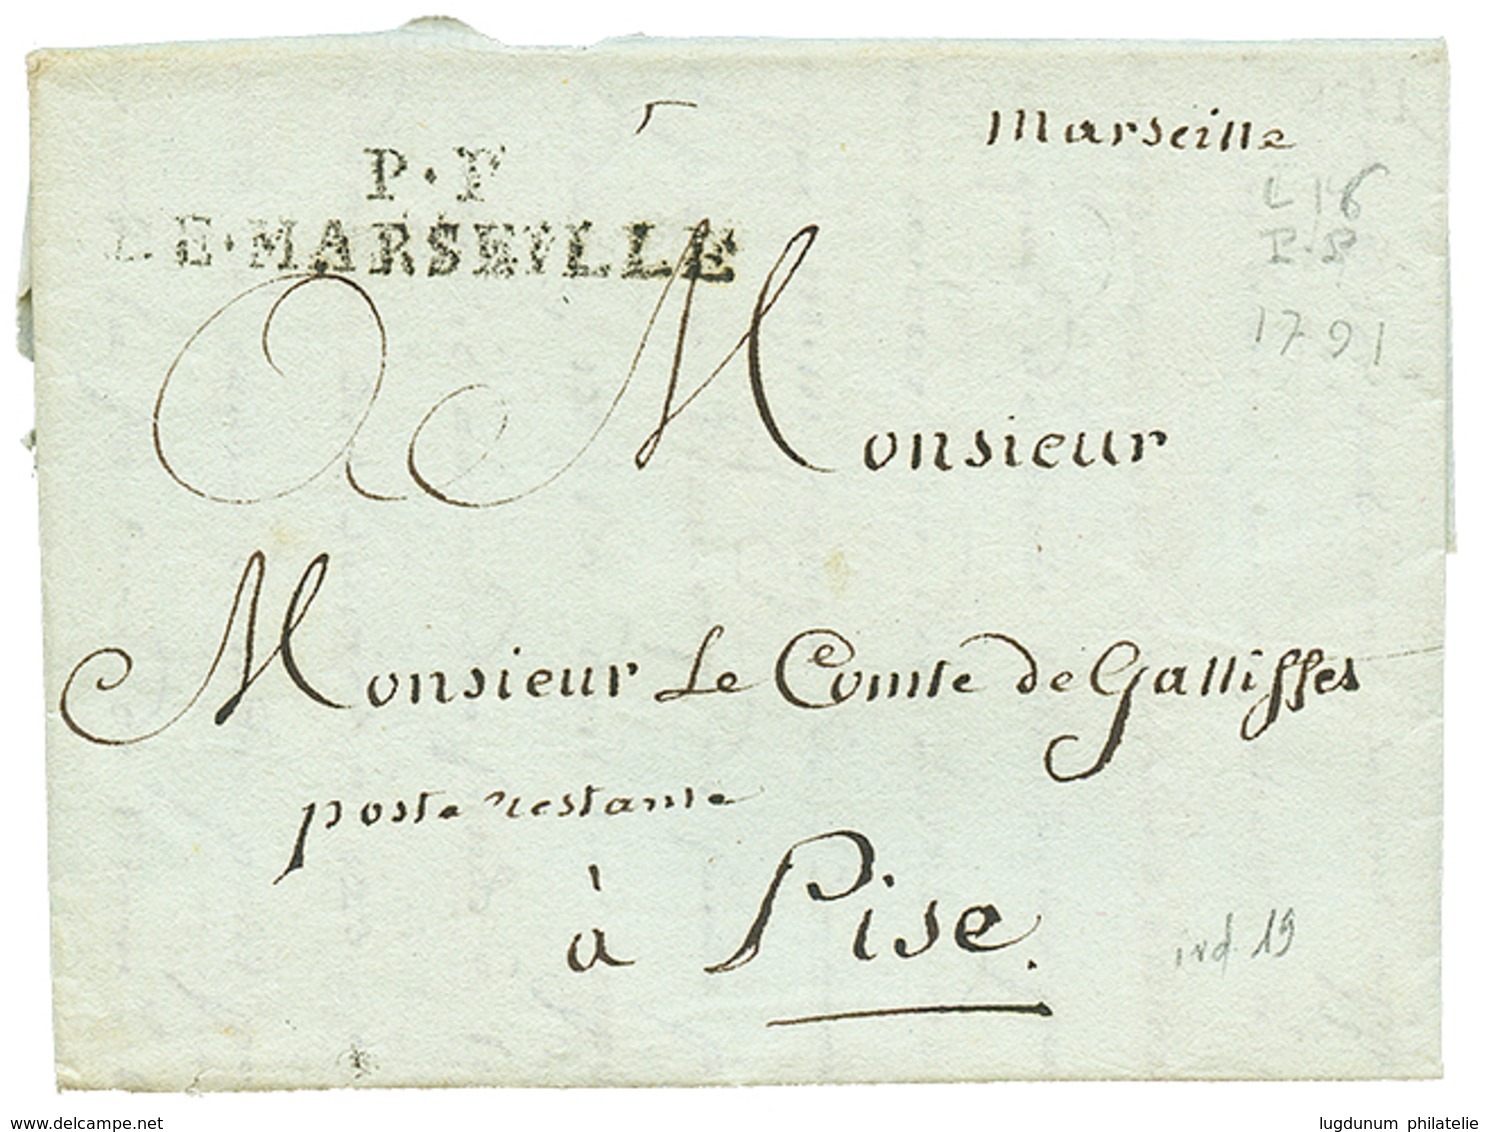 Marseille
P.F
DE.MARSEILLE
L 16
P.P
1791
Monsieur
Monsieur Le Comte de Gallisses
poste restante
à Pise.
ind. 19
www.delcampe.net
lugdunum philatelie